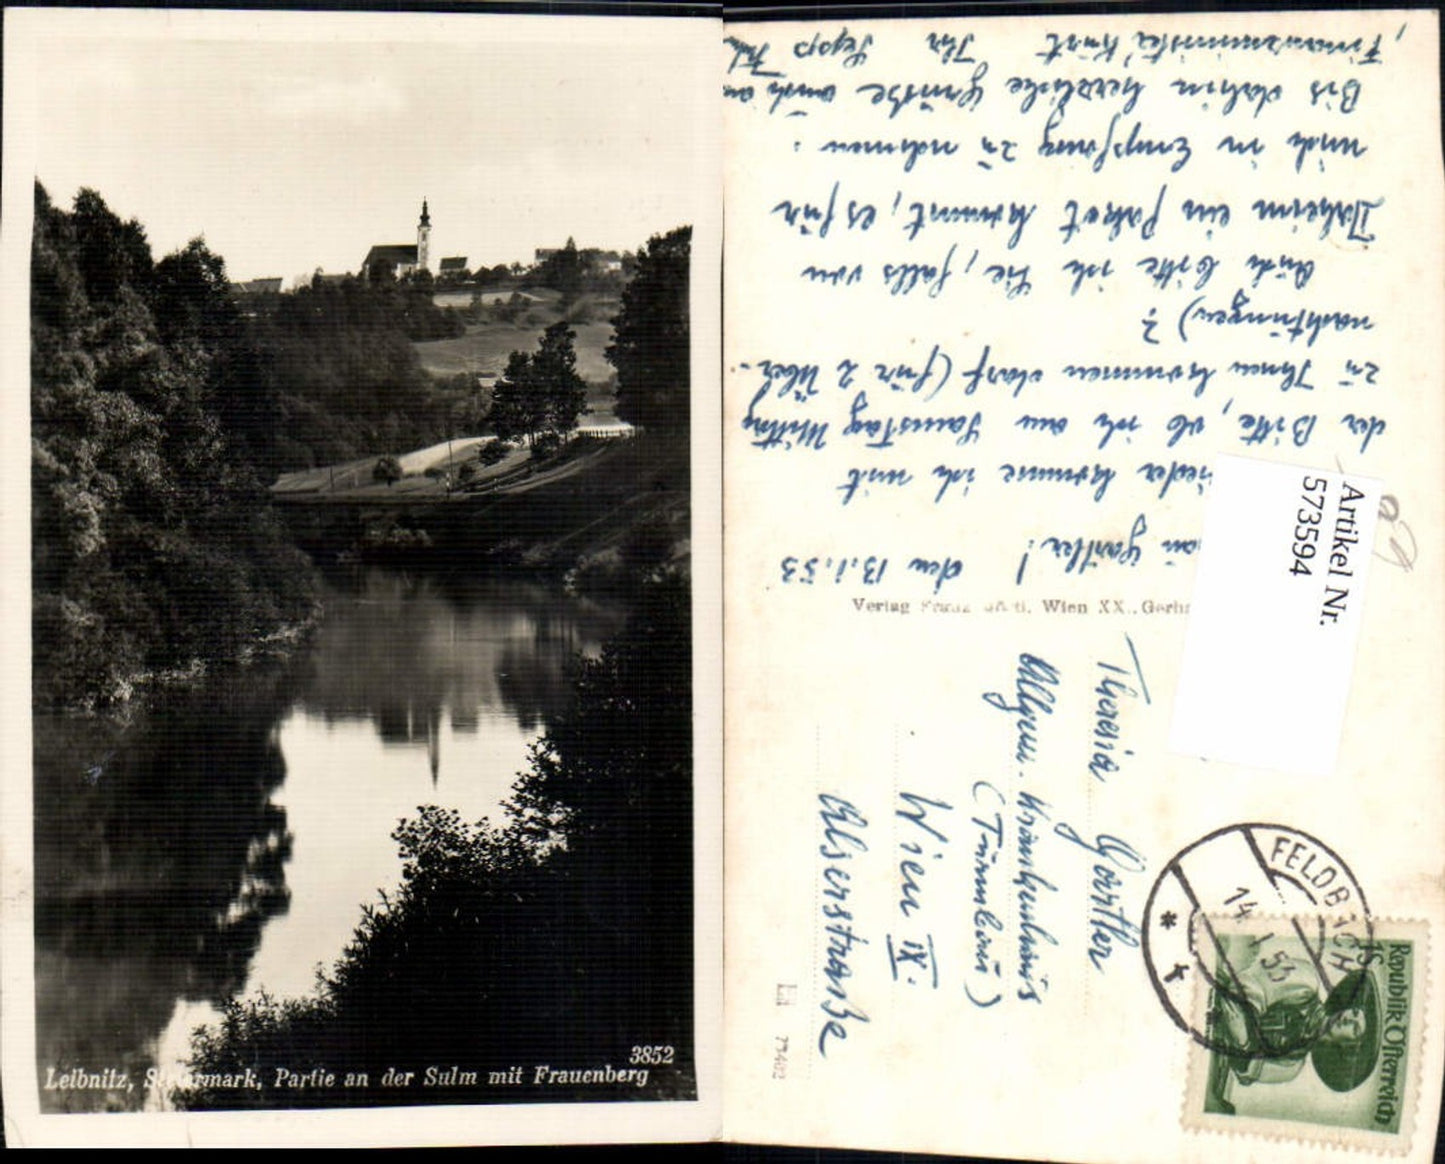 3852
Leibnitz, Steiermark, Partie an der Sulm mit Frauenberg
den 13.1.53
ieder komme ich mit
der Bitte, ob ich am Samstag Mittag
zu Ihnen kommen darf (für 2 Über-
nachtungen)?
Auch bitte ich Sie, falls von
Daheim ein Paket kommt, es für
mich in Empfang zu nehmen.
Bis dahin herzliche Grüße auch an
"Finanzminister" Ihr Sepp
Verlag Franz Wien XX., Gerh
Theresia Gartler
Allgem. Krankenhaus
Wien IX.
Alserstraße
73402
Artikel Nr.
573594
FELDBACH
14. I. 53
Republik Österreich